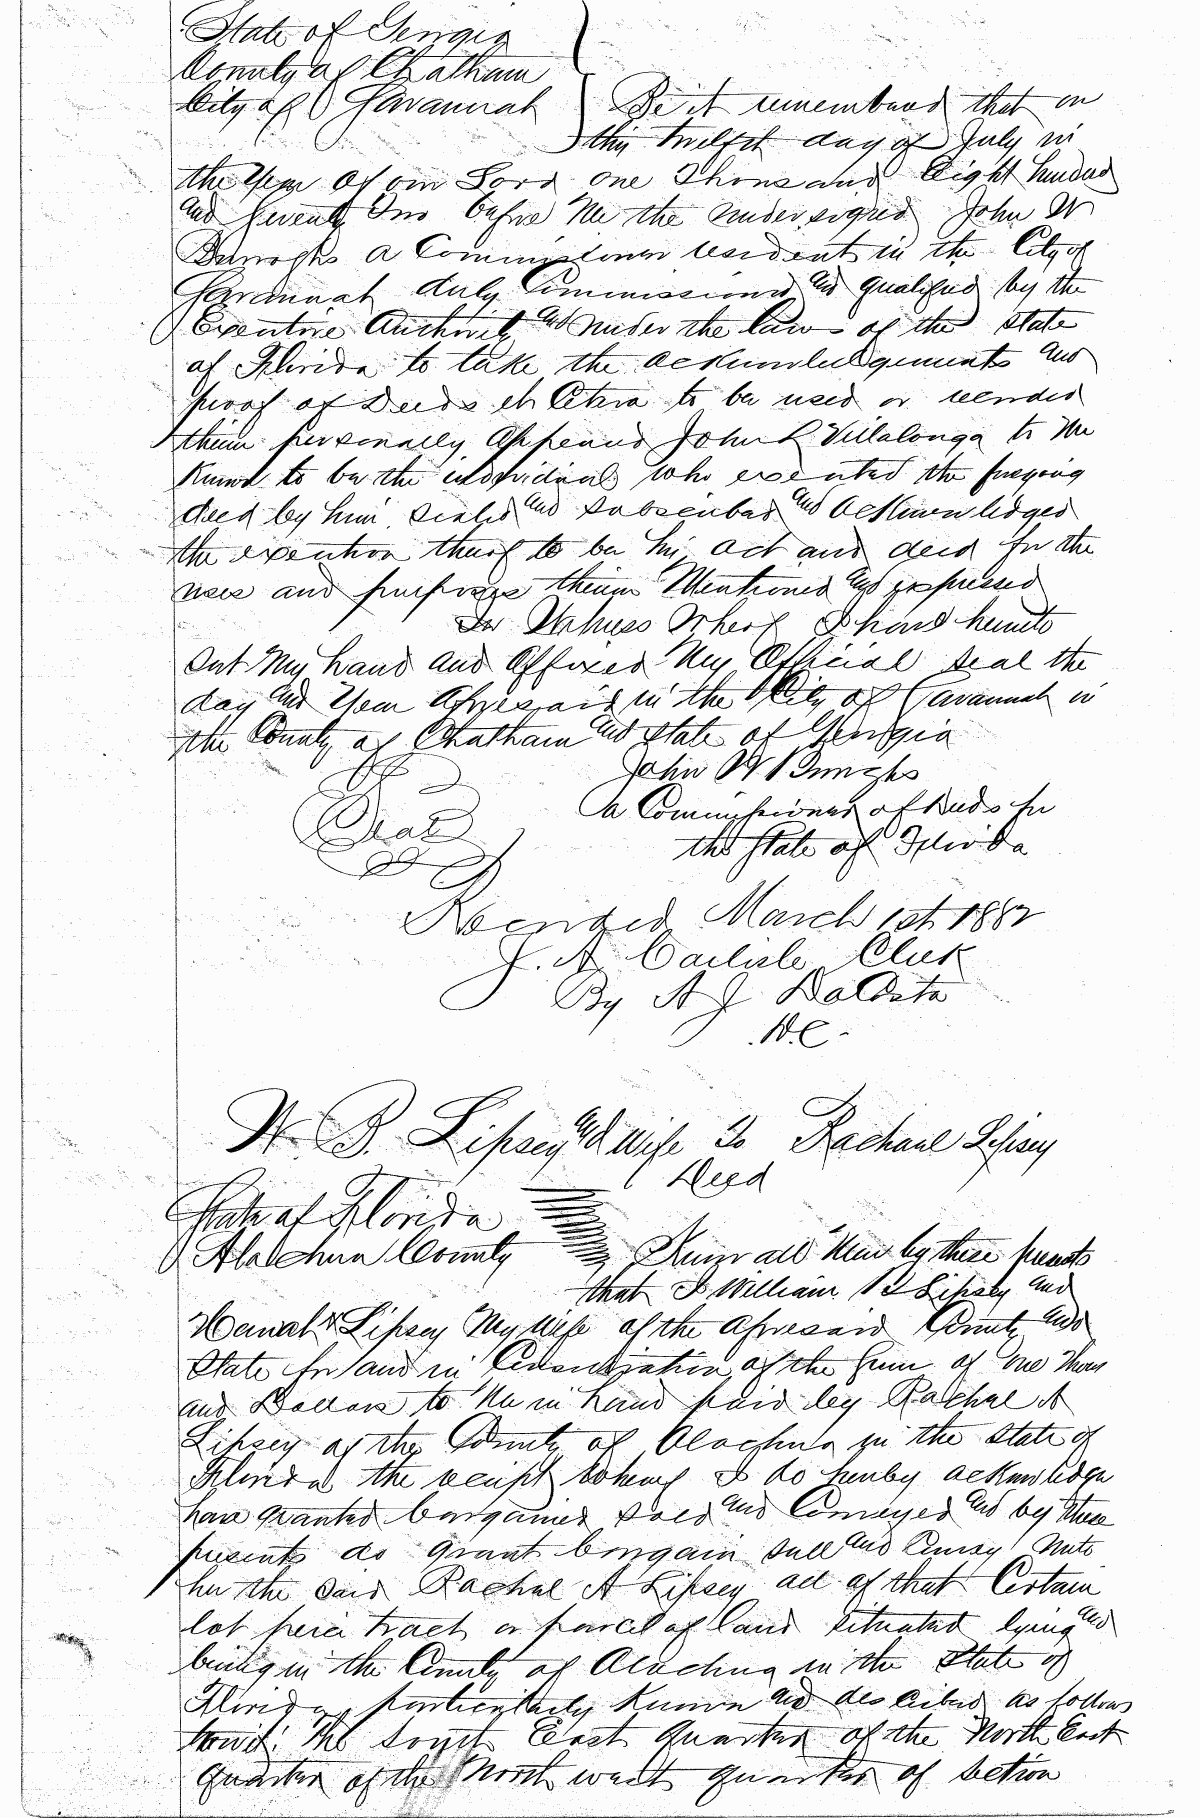 State of Georgia
County of Chatham
City of Savannah Be it remembered that on
this twelfth day of July in
the Year of our Lord one Thousand Eight hundred
and Seventy Two before Me the undersigned John W
Burroughs a Commissioner resident in the City of
Savannah duly Commissioned and qualified by the
Executive Authority and under the laws of the State
of Florida to take the acknowledgements and
proof of Deeds et Cetra to be used or recorded
therein personally Appeared John L Villalonga to Me
Known to be the individual who executed the foregoing
deed by him sealed and subscribed and Acknowledged
the execution thereof to be his act and deed for the
uses and purposes therein Mentioned and expressed
In Witness Whereof I have hereunto
Set My hand and Affixed My Official seal the
day and Year Aforesaid in the City of Savannah in
the County of Chatham and State of Georgia
John W Burroughs
Seal A Commissioner of Deeds for
the State of Florida
Recorded March 1st 1882
J. A. Carlisle Clerk
By A J DaCosta
D.C.
W B. Lipsey and Wife To Rachael Lipsey
Deed
State of Florida
Alachua County Know all Men by these presents
that I William B Lipsey and
Lipsey My Wife of the Aforesaid County and
State for and in Consideration of the Sum of One Thous
and Dollars to Me in hand paid by Rachael A
Lipsey of the County of Alachua in the State of
Florida the receipt whereof I do hereby acknowledge
have granted bargained sold and Conveyed and by these
presents do grant bargain sell and Convey unto
her the said Rachael A Lipsey all of that Certain
lot peice tract or parcel of land situated lying and
being in the County of Alachua in the State of
Florida particularly Known and described as follows
towit: The South East quarter of the North East
quarter of the North west quarter of section